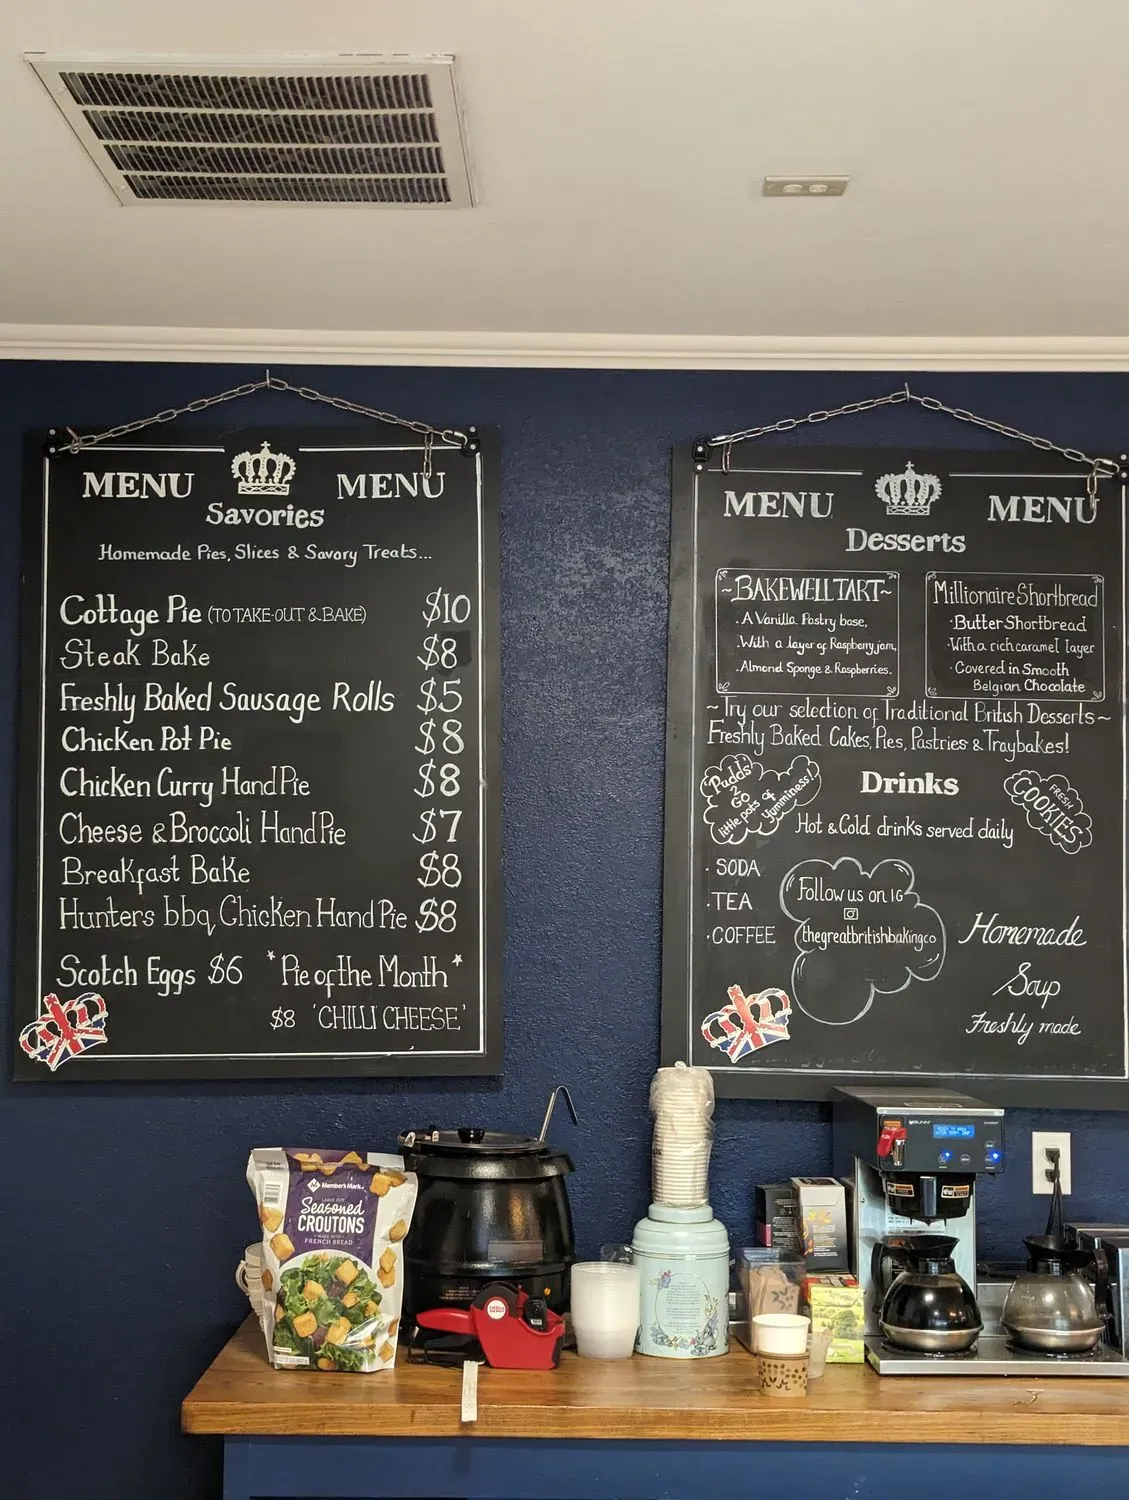 MENU MENU
Savories
Homemade Pies, Slices & Savory Treats...
Cottage Pie (TO TAKE-OUT & BAKE) $10
Steak Bake $8
Freshly Baked Sausage Rolls $5
Chicken Pot Pie $8
Chicken Curry Hand Pie $8
Cheese & Broccoli Hand Pie $7
Breakfast Bake $8
Hunters bbq Chicken Hand Pie $8
Scotch Eggs $6 *Pie of the Month*
$8 'CHILLI CHEESE'
MENU MENU
Desserts
~BAKEWELL TART~
. A Vanilla Pastry base,
. With a layer of Raspberry jam,
. Almond Sponge & Raspberries.
Millionaire Shortbread
· Butter Shortbread
· With a rich caramel layer
· Covered in Smooth
Belgian Chocolate
~Try our selection of Traditional British Desserts~
Freshly Baked Cakes, Pies, Pastries & Traybakes!
Pudds
2
GO
little pots of
Yumminess!
Drinks
FRESH
COOKIES
Hot & Cold drinks served daily
· SODA
· TEA
· COFFEE
Follow us on IG
thegreatbritishbakingco
Homemade
Soup
Freshly made
Member's Mark
LARGE CUT
Seasoned
CROUTONS
MADE WITH
FRENCH BREAD
Office
DEPOT
BUNN